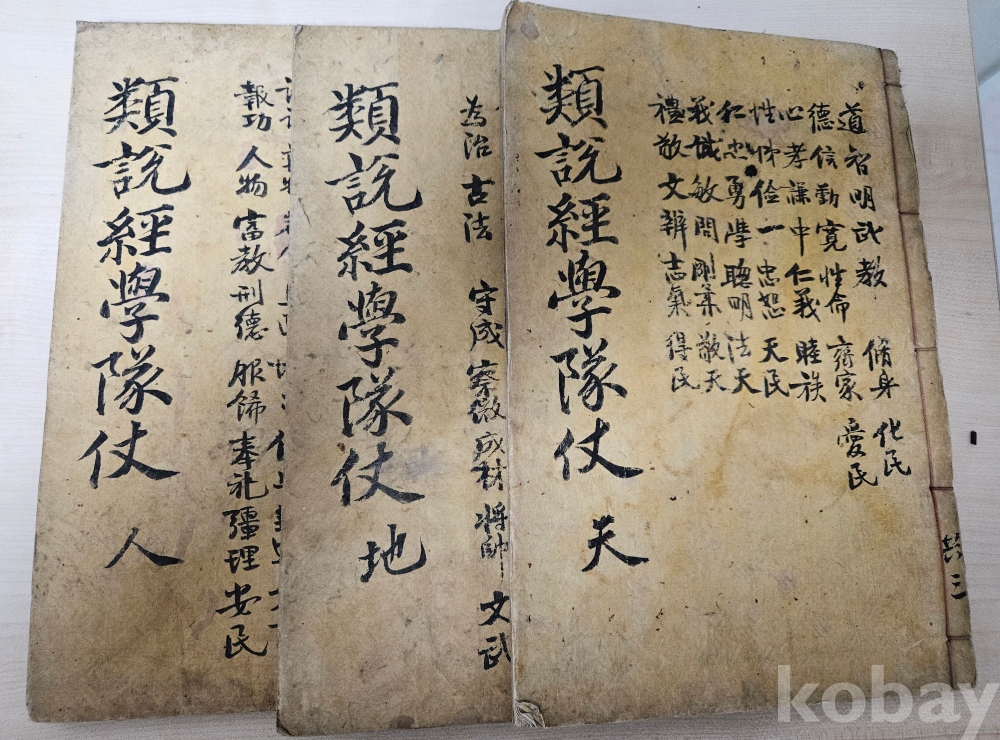 道智明武教 脩身 化民
德信勤寬性命 齊家 愛民
心孝謙中仁義 睦族
性悌儉一忠恕 天民
仁忠勇學聰明 法天
義誠敏問剛柔 敬天
禮敬文辨志氣 得民
類說經學隊仗 天
共三
為治 古法 守成 察微 成材 將帥 文武
類說經學隊仗 地
報功 人物 富教 刑德 服飾 奉礼 彊理 安民
類說經學隊仗 人
kobay